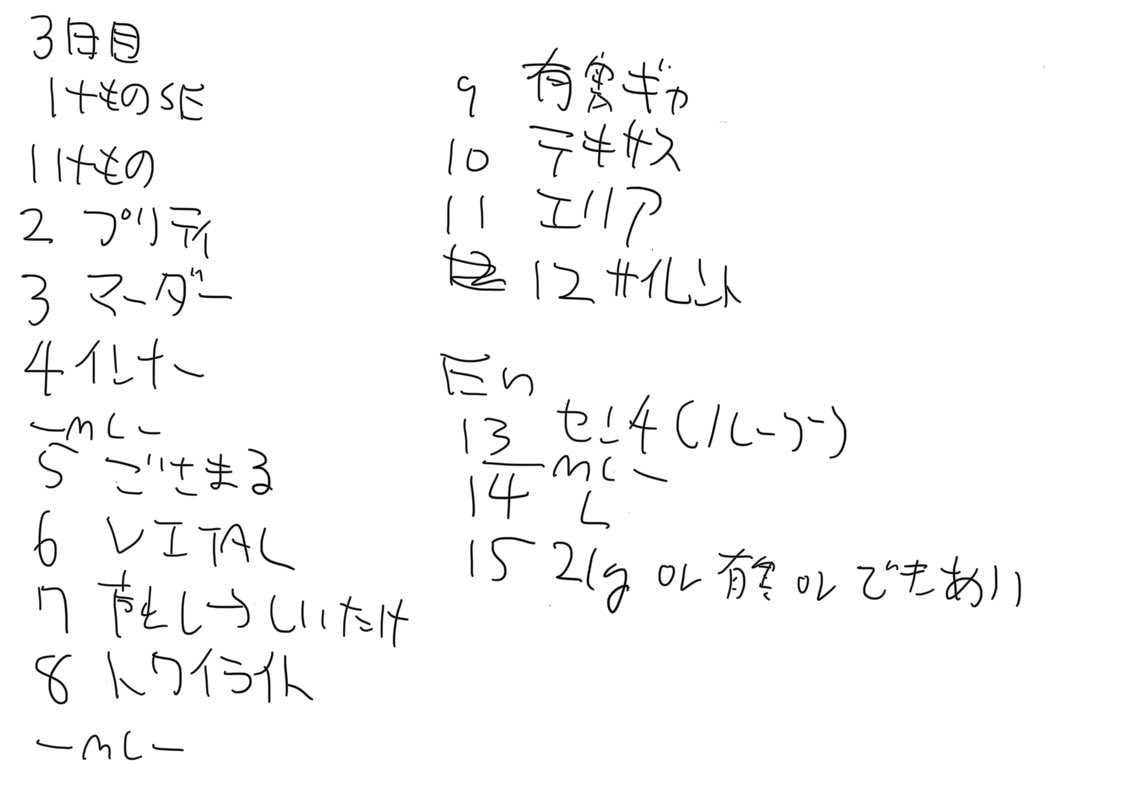 3日目
けものSE
1けもの
2 プリティ
3 マーダー
4 インナー
-MC-
5 ござまる
6 VITAL
7 もとし→しいたけ
8 トワイライト
-MC-
9 有害ギャ
10 テキサス
11 エリア
12 サイレント
En
13 セン4(ルーツー)
-MC-
14 L
15 21g or 有害 or できあい